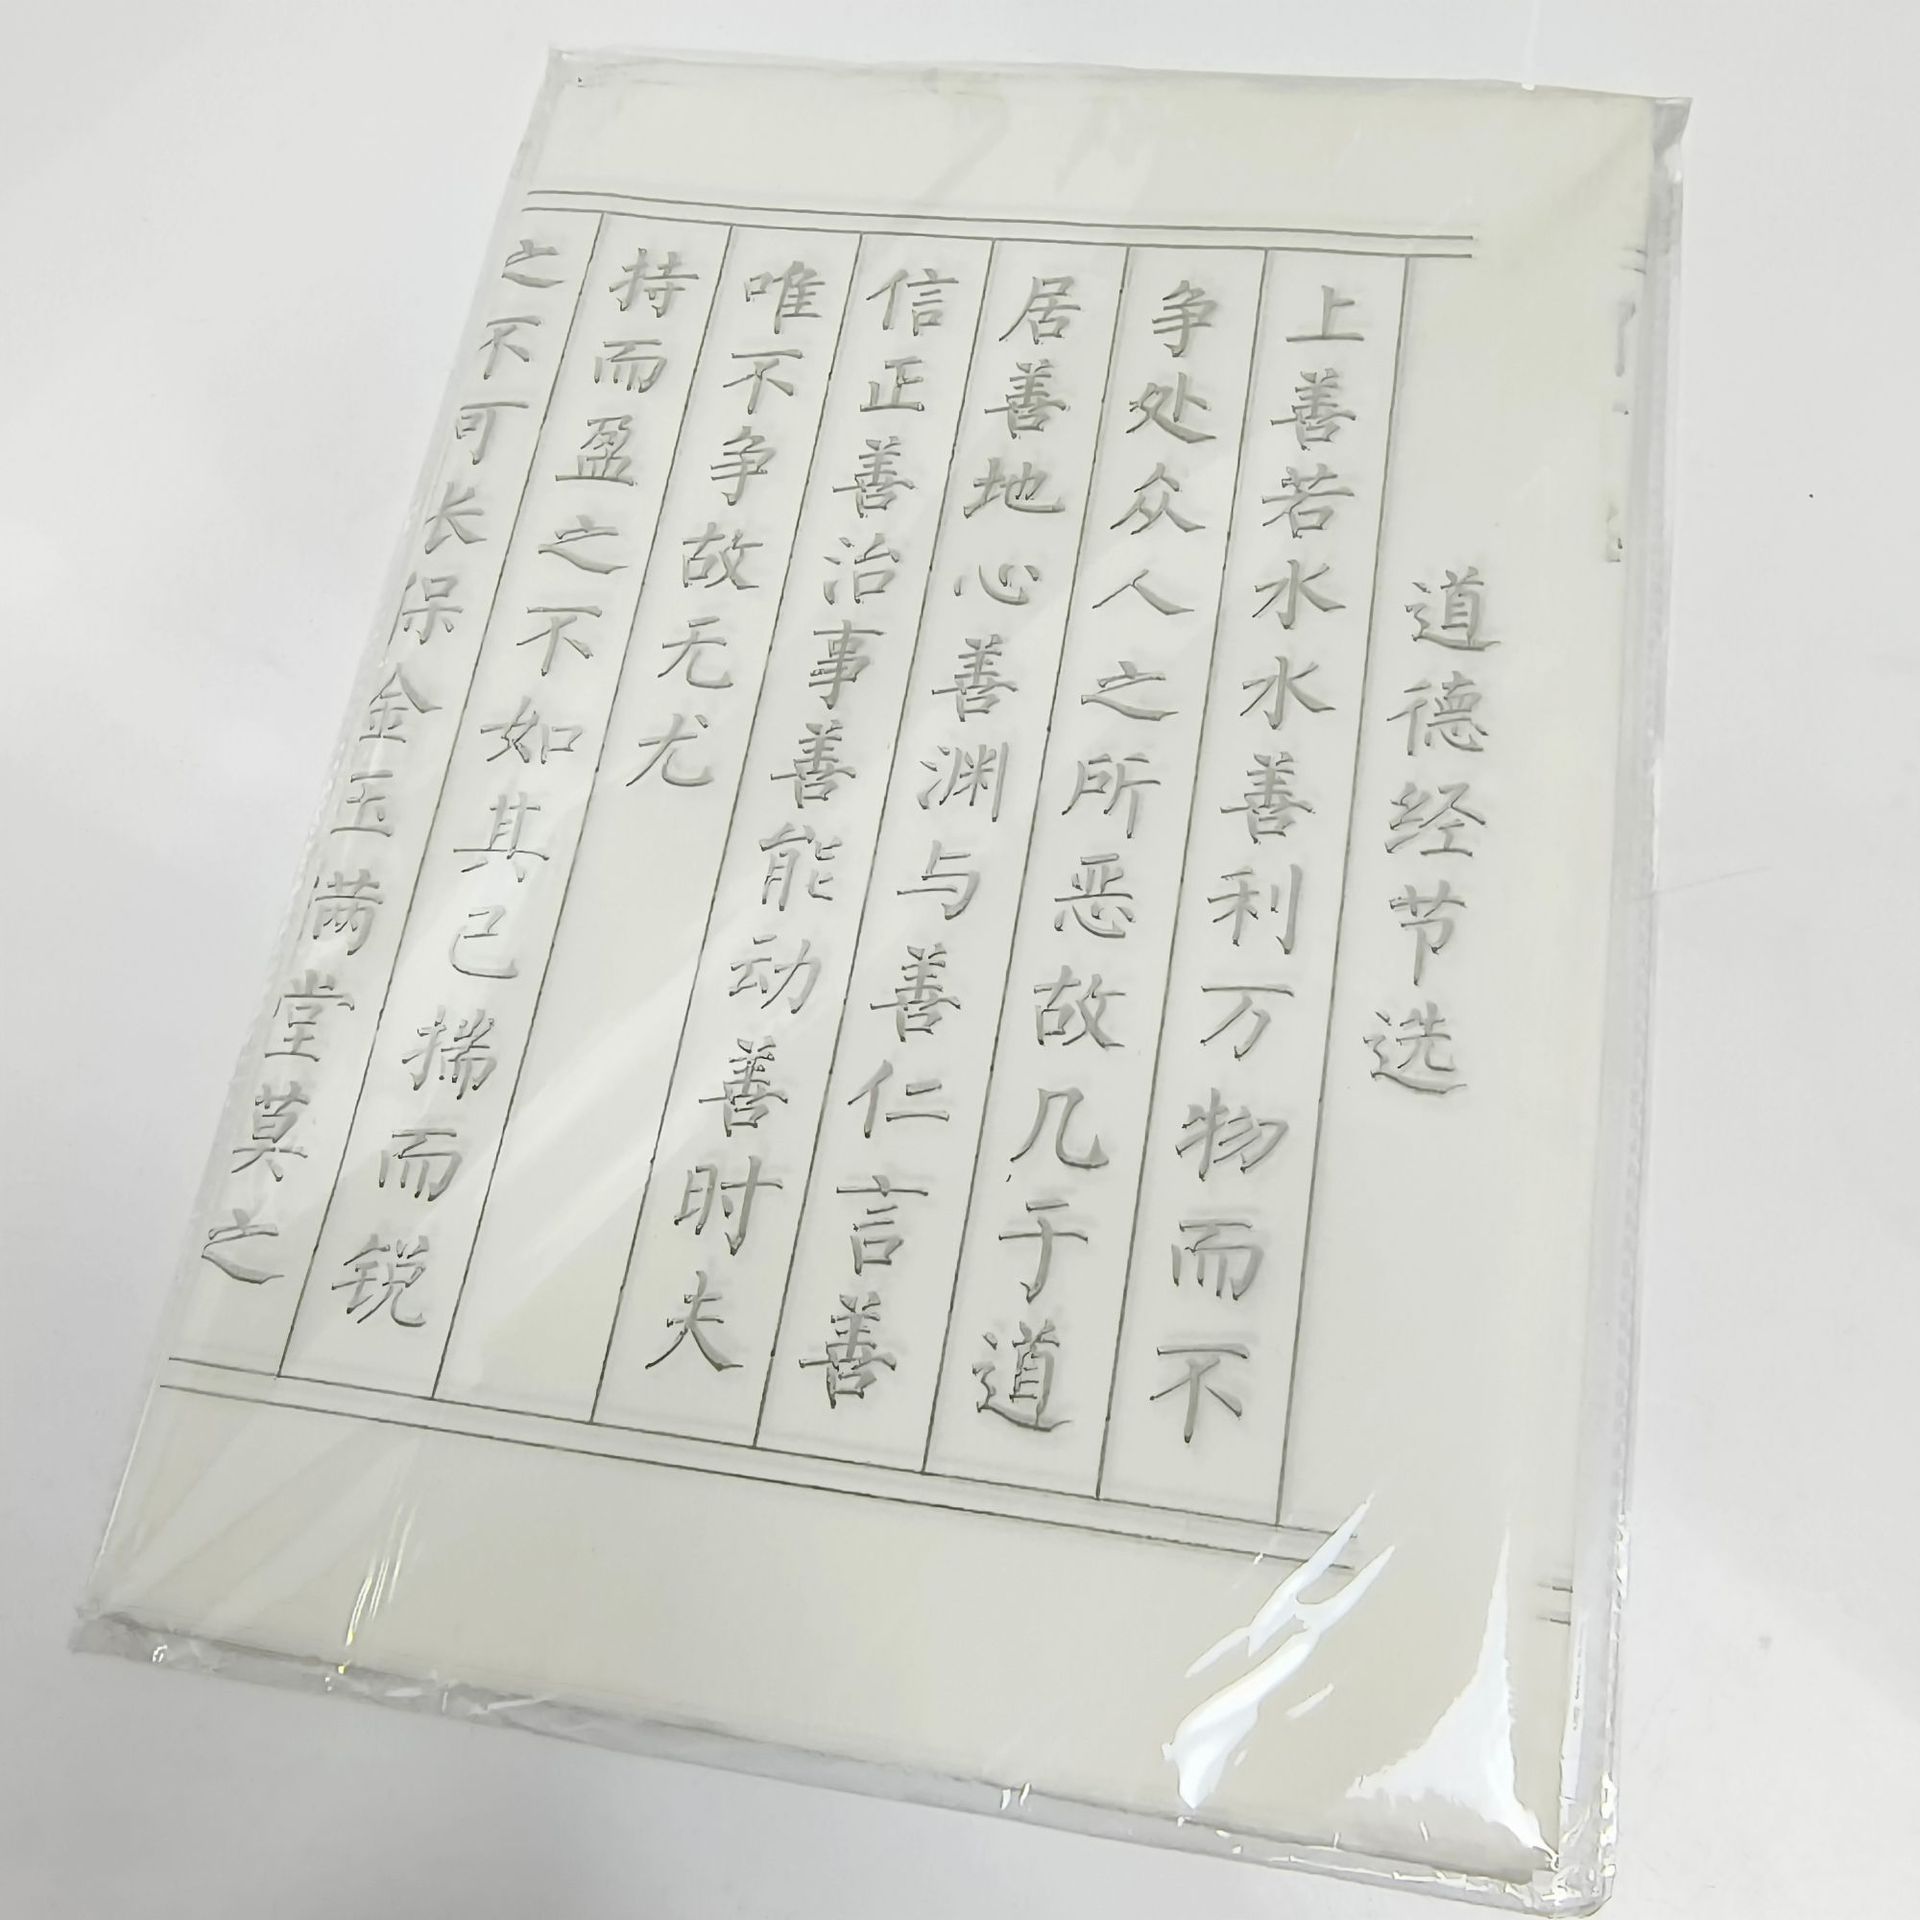 道德经节选
上善若水水善利万物而不
争处众人之所恶故几于道
居善地心善渊与善仁言善
信正善治事善能动善时夫
唯不争故无尤
持而盈之不如其己揣而锐
之不可长保金玉满堂莫之